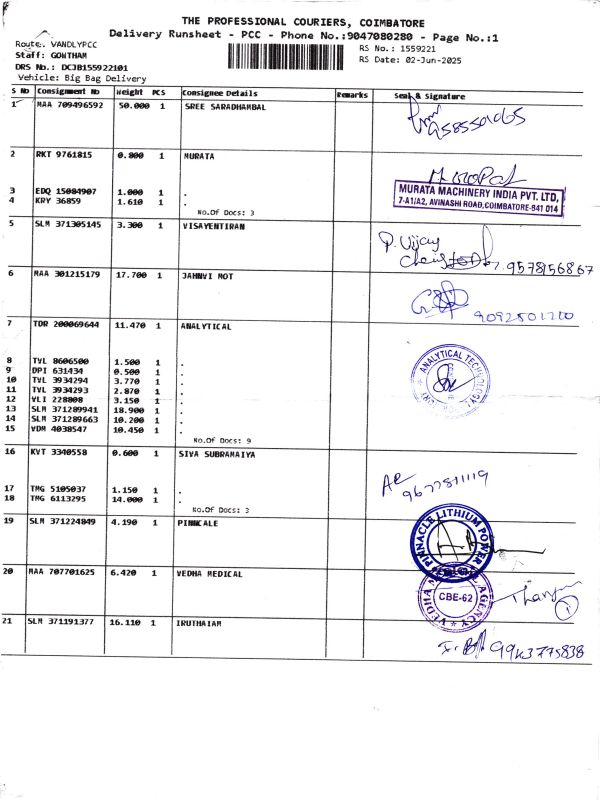 THE PROFESSIONAL COURIERS, COIMBATORE
Delivery Runsheet - PCC - Phone No.:9047080280 - Page No.:1
Route: VANDLYPCC
RS No.: 1559221
Staff: GOWTHAM
RS Date: 02-Jun-2025
DRS No.: DCJB155922101
Vehicle: Big Bag Delivery
S No Consignment No Weight PCS Consignee Details Remarks Seal & Signature
1 MAA 709496592 50.000 1 SREE SARADHAMBAL
9585501065
2 RKT 9761815 0.800 1 MURATA
MURATA MACHINERY INDIA PVT. LTD,
7-A1/A2, AVINASHI ROAD, COIMBATORE-641 014
3 EDQ 15084907 1.000 1 .
4 KRY 36859 1.610 1 .
No.Of Docs: 3
5 SLM 371305145 3.300 1 VISAYENTIRAN
P. Vijay
9578156867
6 MAA 301215179 17.700 1 JAHNVI MOT
9092801200
7 TDR 200069644 11.470 1 ANALYTICAL
ANALYTICAL TECHNOLOGY
8 TVL 8606500 1.500 1 .
9 DPI 631434 0.500 1 .
10 TVL 3934294 3.770 1 .
11 TVL 3934293 2.870 1 .
12 VLI 228808 3.150 1 .
13 SLM 371289941 18.900 1 .
14 SLM 371289663 10.200 1 .
15 VDM 4038547 10.450 1 .
No.Of Docs: 9
16 KVT 3340558 0.600 1 SIVA SUBRAMAIYA
9677811119
17 TMG 5105037 1.150 1 .
18 TMG 6113295 14.000 1 .
No.Of Docs: 3
19 SLM 371224849 4.190 1 PINNCALE
PINNACLE LITHIUM POWER
20 MAA 707701625 6.420 1 VEDHA MEDICAL
VEDHA AGENCY
CBE-62
21 SLM 371191377 16.110 1 IRUTHAIAM
9943775838